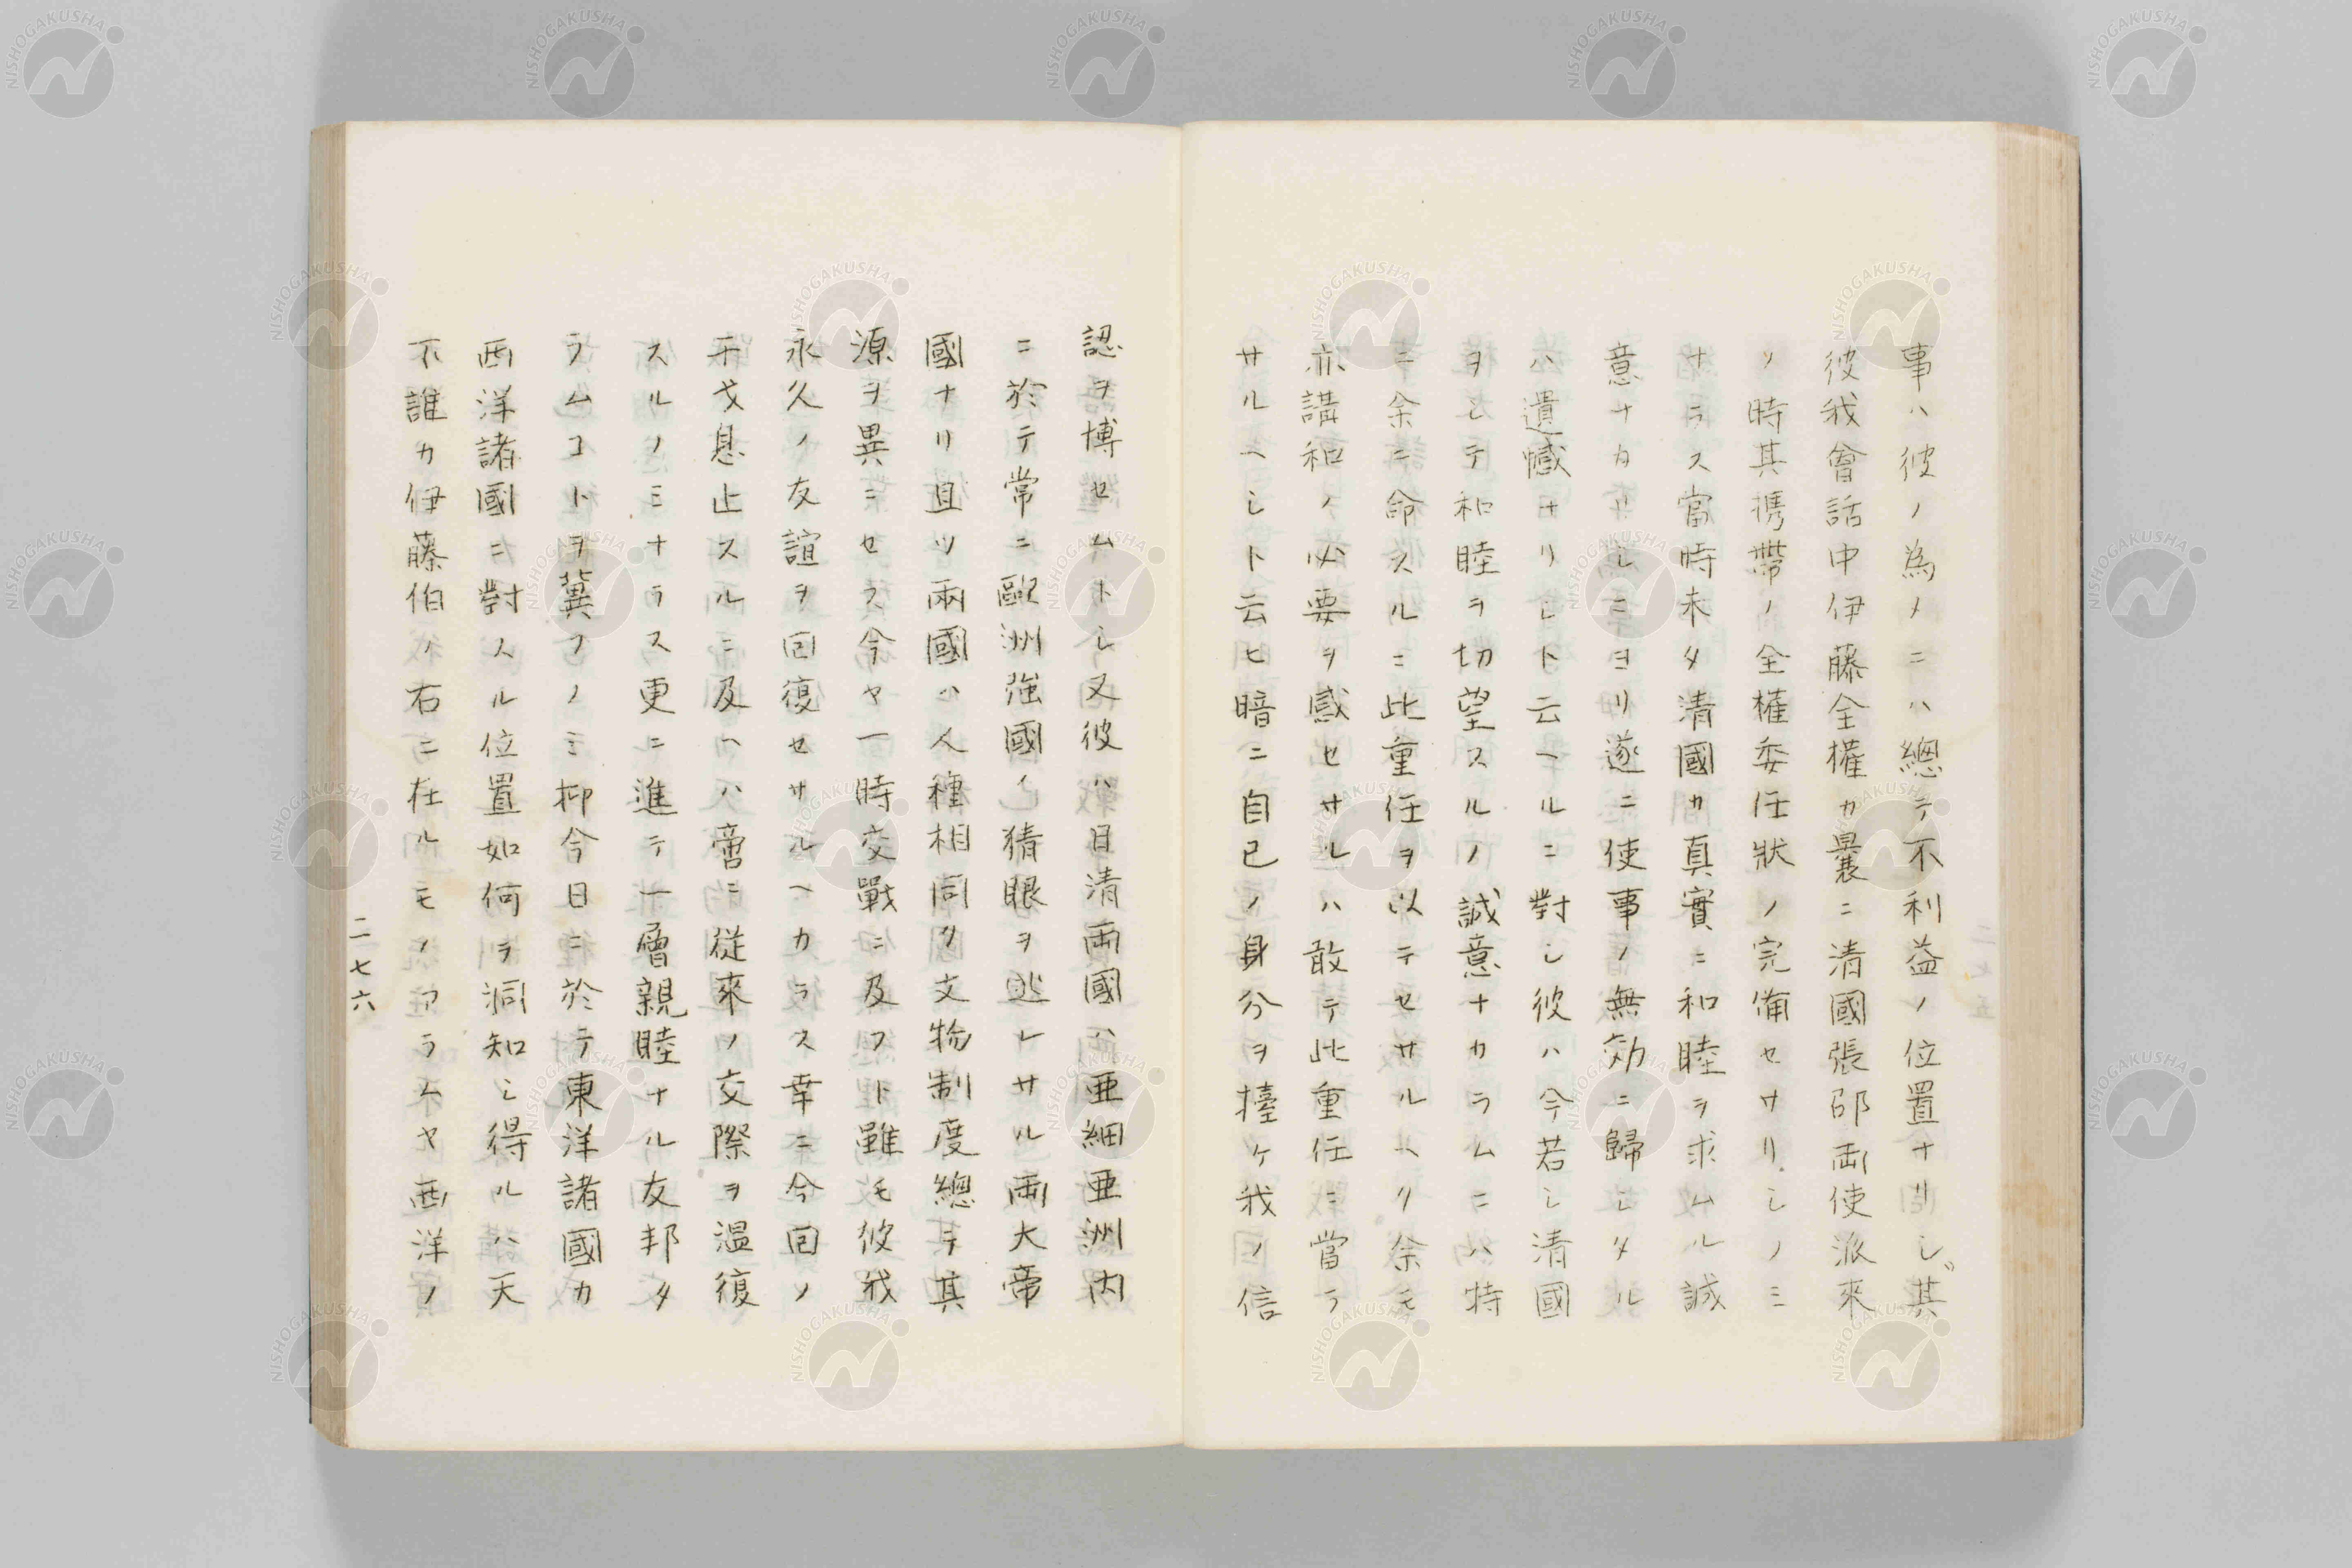 事ハ彼ノ為メニハ總テ不利益ノ位置ナリシ其
彼我會話中伊藤全權カ曩ニ清國張邵両使派來
ノ時其携帯ノ全權委任狀ノ完備セサリシノミ
ナラス當時未タ清國カ真實ニ和睦ヲ求ムル誠
意ナカリシニヨリ遂ニ使事ノ無効ニ歸シタル
ハ遺憾ナリシト云ヘルニ對シ彼ハ今若シ清國
ヲシテ和睦ヲ切望スルノ誠意ナカラムニハ特
ニ余ニ命スルニ此重任ヲ以テセサルヘク余モ
亦講和ノ必要ヲ感セサルハ敢テ此重任ニ當ラ
サルヘシト云ヒ暗ニ自己ノ身分ヲ擡ケ我ノ信
認ヲ博セムトシ又彼ハ日清両國ハ亜細亜洲内
ニ於テ常ニ歐洲強國ノ猜眼ヲ逃レサル両大帝
國ナリ且ツ兩國ハ人種相同ク文物制度總テ其
源ヲ異ニセス今ヤ一時交戰ニ及フト雖モ彼我
永久ノ友誼ヲ回復セサルヘカラス幸ニ今回ノ
干戈息止スルニ及ヘハ啻ニ従來ノ交際ヲ温復
スルノミナラス更ニ進テ一層親睦ナル友邦タ
ラムコトヲ冀フノミ抑今日ニ於テ東洋諸國カ
西洋諸國ニ對スル位置如何ヲ洞知シ得ルハ天
下誰カ伊藤伯ノ右ニ在ルモノアラムヤ西洋ノ
二七六